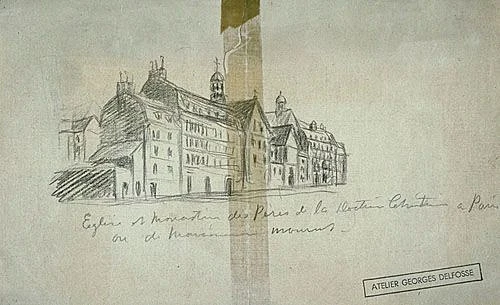 Eglise et Monastère des Pères de la Doctrine Chrétienne a Paris
ou de mourut
ATELIER GEORGES DELFOSSE